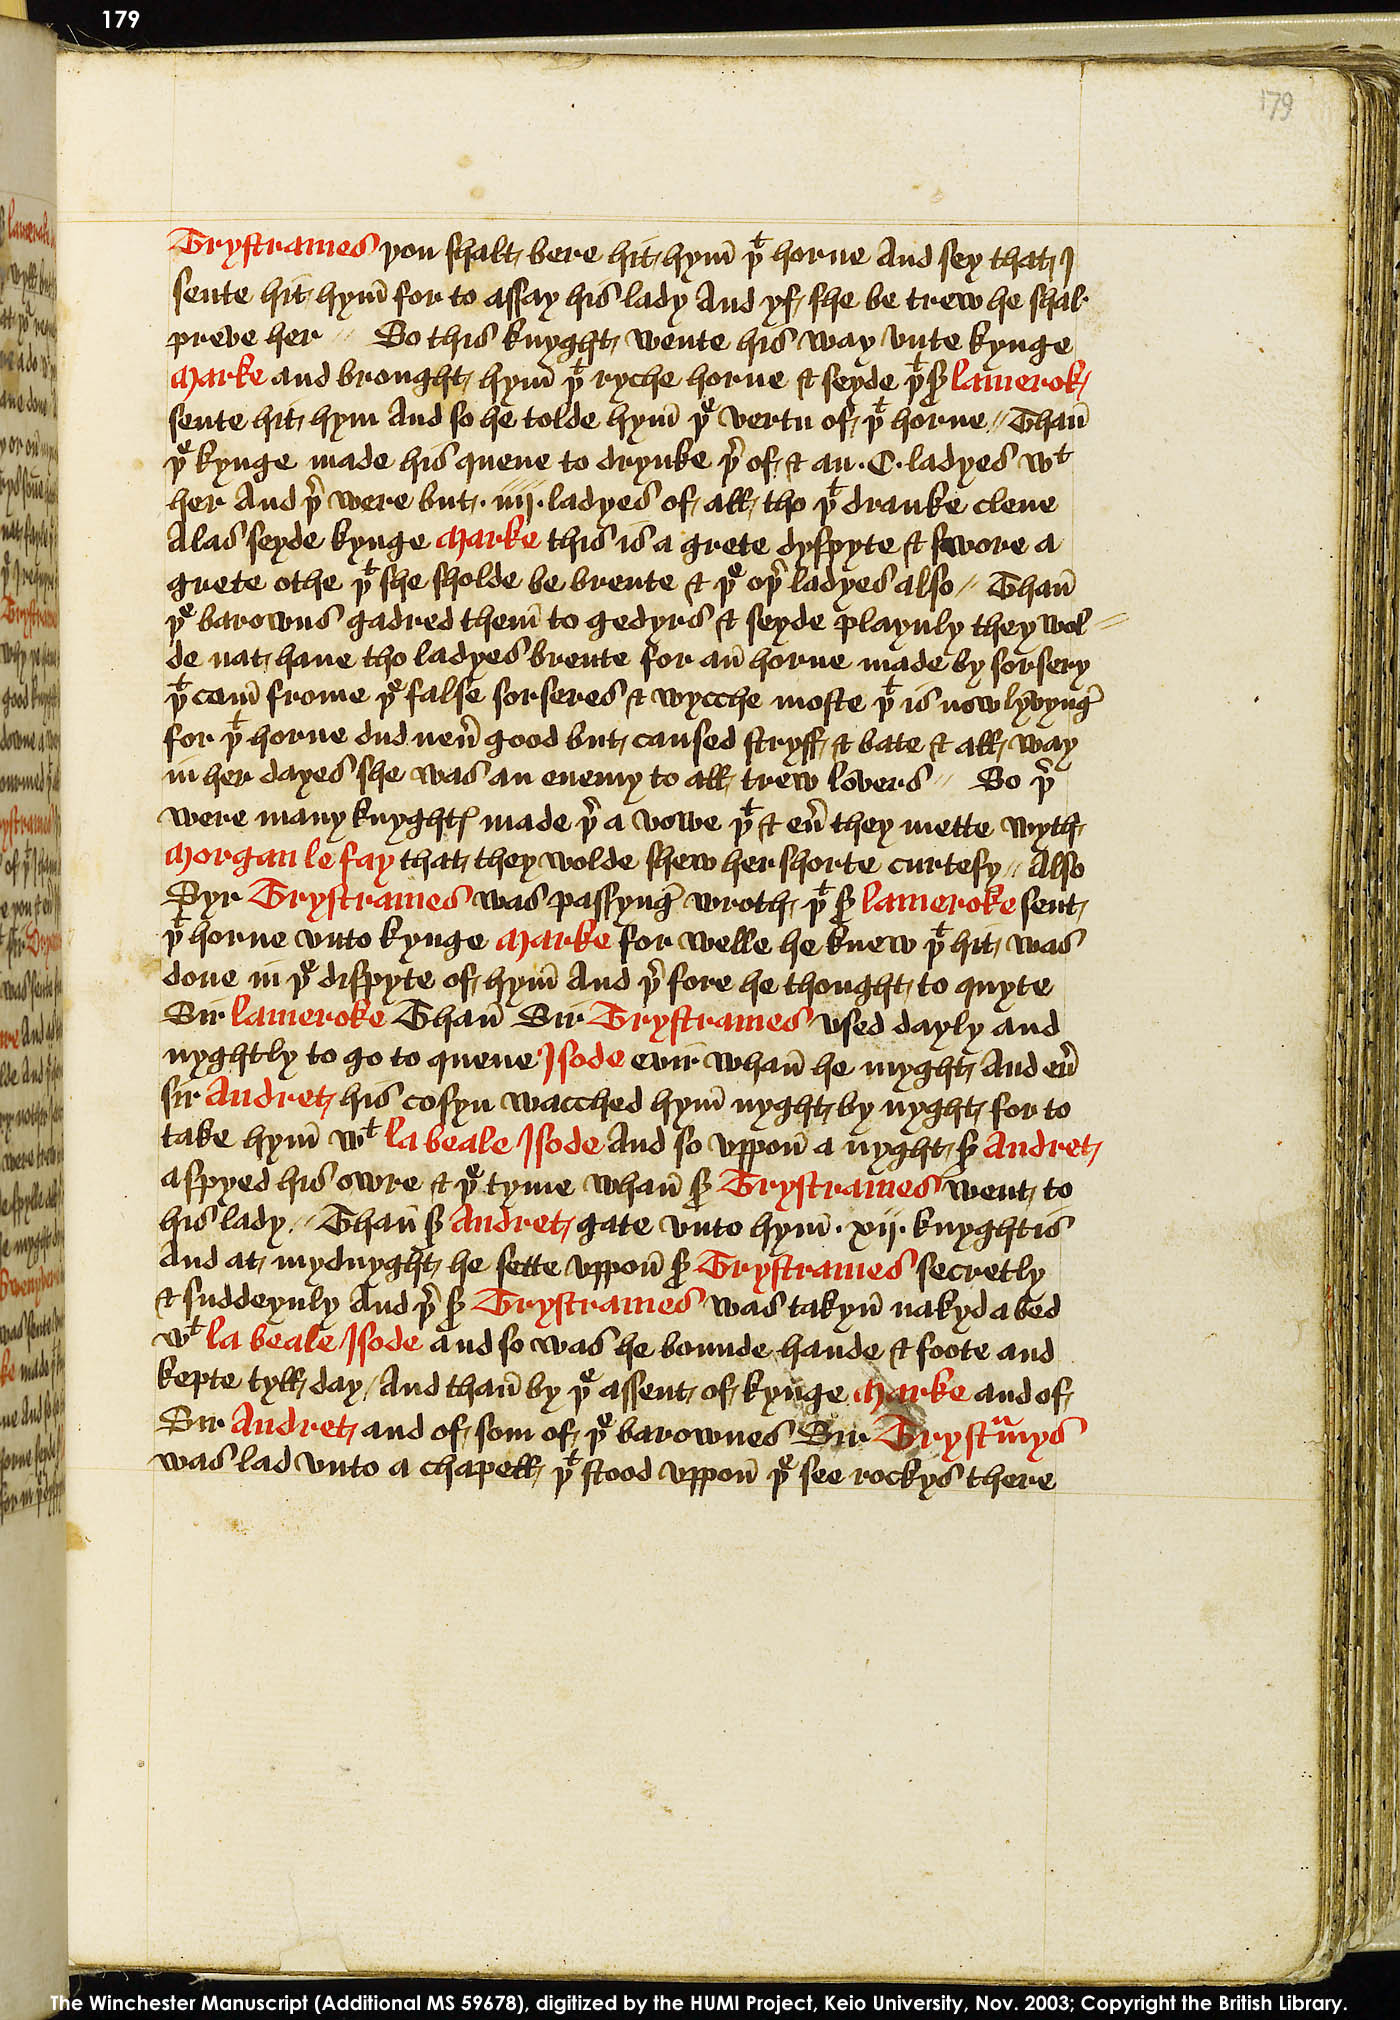 179
179
Trystrames þou shalt bere hit hym̄ þᵗ horne And sey that I
sente hit hym̄ for to assay his lady And yf she be trew he shal
preve her // So this knyght wente his way vnte kynge
Marke and brought hym̄ þᵗ ryche horne & seyde þᵗ sͬ lamerok
sente hit hym And so he tolde hym̄ þᵉ vertu of þᵗ horne // Than̄
þᵉ kynge made his quene to drynke þʳ of & an .C. ladyes wᵗ
her And þʳ were but .iiij. ladyes of all tho þᵗ dranke clene
Alas seyde kynge Marke this is a grete dyspyte & swore a
grete othe þᵗ she sholde be brente & þᵉ oþʳ ladyes also // Than̄
þᵉ barowns gadred them̄ to gedyrs & seyde playnly they wol //
de nat haue tho ladyes brente for an̄ horne made by sorsery
þᵗ cam̄ frome þᵉ false sorseres & wycche moste þᵗ is now lyvynḡ
for þᵗ horne dud neuͬ good but caused stryff & bate & all way
in her dayes she was an enemy to all trew lovers // So þʳ
were many knyghtꝭ made þʳ a vowe þᵗ & euͬ they mette wyth
Morgan le fay that they wolde shew her shorte curtesy // Also
Syr Trystrames was passynḡ wroth þᵗ sͬ lameroke sent
þᵗ horne vnto kynge Marke for welle he knew þᵗ hit was
done in þᵉ dispyte of hym̄ And þʳ fore he thought to quyte
Sir lameroke Than̄ Sir Trystrames vsed dayly and
nyghtly to go to quene Isode evir whan̄ he myght And euͬ
sir Andret his cosyn wacched hym̄ nyght by nyght for to
take hym̄ wᵗ la beale Isode And so vppon̄ a nyght sͬ Andret
aspyed his owre & þᵉ tyme whan̄ sͬ Trystrames went to
his lady // Than̄ sͬ Andret gate vnto hym̄ .xij. knyghtis
And at mydnyght he sette vppon̄ sͬ Trystrames secretly
& suddeynly And þʳ sͬ Trystrames was takyn̄ nakyd a bed
wᵗ la beale Isode and so was he bounde hande & foote and
kepte tyll day / And than̄ by þᵉ assent of kynge Marke and of
Sir Andret and of som of þᵉ barownes Sir Trystᵃmys
was lad vnto a chapell þᵗ stood vppon̄ þᵉ see rockys there
The Winchester Manuscript (Additional MS 59678), digitized by the HUMI Project, Keio University, Nov. 2003; Copyright the British Library.